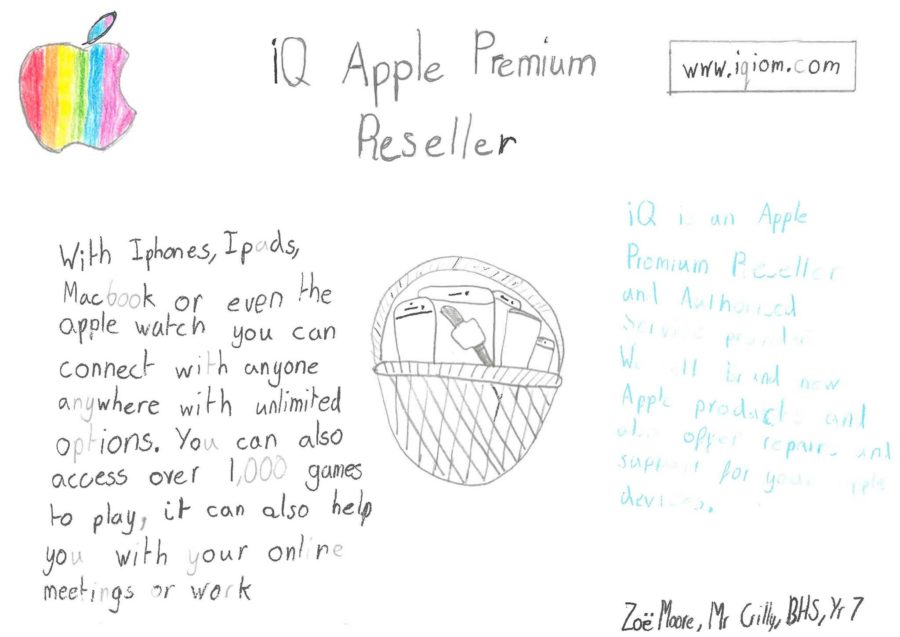 iQ Apple Premium
Reseller
www.iqiom.com
With Iphones, Ipads,
Macbook or even the
apple watch you can
connect with anyone
anywhere with unlimited
options. You can also
access over 1,000 games
to play, it can also help
you with your online
meetings or work
iQ is an Apple
Premium Reseller
and Authorised
Service provider
We sell brand new
Apple products and
also offer repairs and
support for your apple
devices.
Zoë Moore, Mr Crilly, BHS, Yr 7